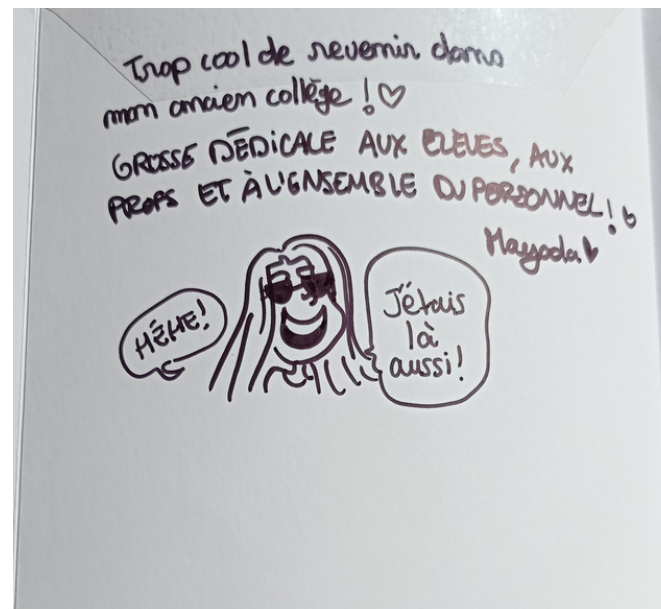 Trop cool de revenir dans
mon ancien collège ! ♡
GROSSE DÉDICALE AUX ELEVES, AUX
PROFS ET À L'ENSEMBLE DU PERSONNEL !
Mayoda
HÉHE!
J'étais
là
aussi!